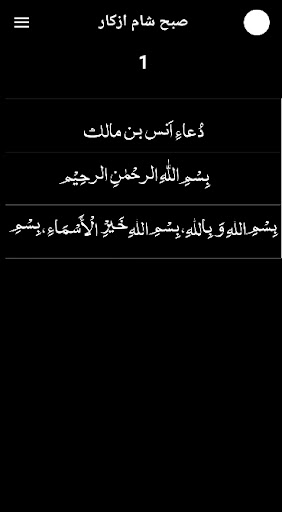 صبح شام ازکار
1
دُعاءِ اَنس بن مالک
بِسْمِ اللّٰهِ الرحْمٰنِ الرحِيْم
بِسْمِ اللهِ وَ بِاللهِ، بِسْمِ اللهِ خَيْرِ الْأَسْمَاءِ، بِسْمِ